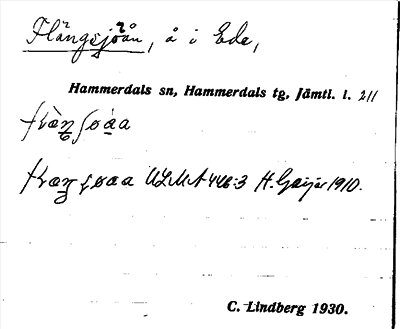 Flängsjöån, å i Ede,
Hammerdals sn, Hammerdals tg, Jämtl. l. 211
ULMA 446:3 H. Geijer 1910.
C. Lindberg 1930.